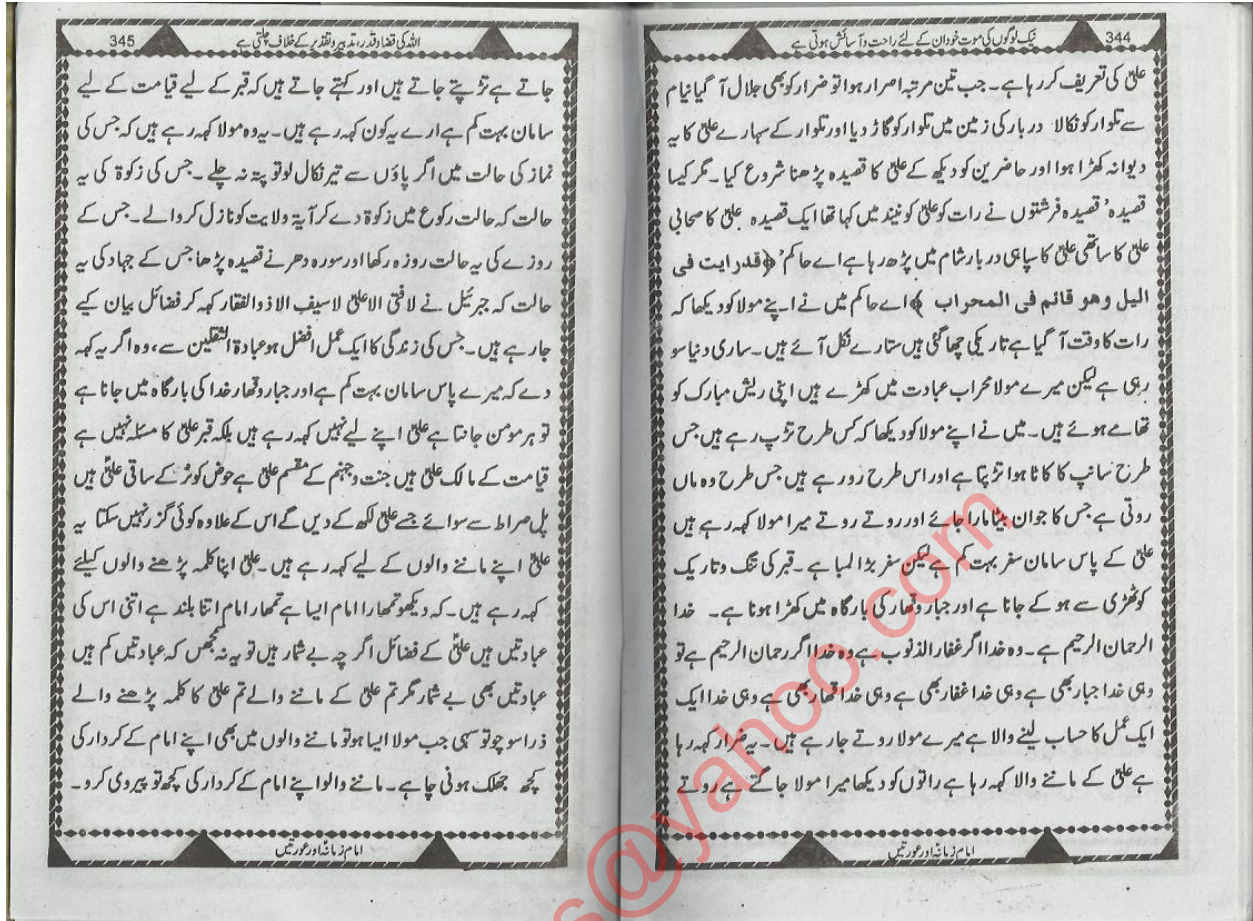 344
نیک لوگوں کی موت خود ان کے لئے راحت و آسائش ہوتی ہے
علیؑ کی تعریف کر رہا ہے۔ جب تین مرتبہ اصرار ہوا تو ضرار کو بھی جلال آ گیا نیام
سے تلوار کو نکالا دربار کی زمین میں تلوار کو گاڑ دیا اور تلوار کے سہارے علیؑ کا یہ
دیوانہ کھڑا ہوا اور حاضرین کو دیکھ کے علیؑ کا قصیدہ پڑھنا شروع کیا۔ مگر کیسا
قصیدہ' قصیدہ فرشتوں نے رات کو علیؑ کو نیند میں کہا تھا ایک قصیدہ علیؑ کا صحابی
علیؑ کا ساتھی علیؑ کا سپاہی دربار شام میں پڑھ رہا ہے اے حاکم' ﴿قد رایت فی
الیل وھو قائم فی المحراب ﴾ اے حاکم میں نے اپنے مولا کو دیکھا کہ
رات کا وقت آ گیا ہے تاریکی چھا گئی ہیں ستارے نکل آئے ہیں۔ ساری دنیا سو
رہی ہے لیکن میرے مولا محراب عبادت میں کھڑے ہیں اپنی ریش مبارک کو
تھامے ہوئے ہیں۔ میں نے اپنے مولا کو دیکھا کہ کس طرح تڑپ رہے ہیں جس
طرح سانپ کا کاٹا ہوا تڑپتا ہے اور اس طرح رو رہے ہیں جس طرح وہ ماں
روتی ہے جس کا جوان بیٹا مارا جائے اور روتے روتے میرا مولا کہہ رہے ہیں
علیؑ کے پاس سامان سفر بہت کم ہے لیکن سفر بڑا لمبا ہے۔ قبر کی تنگ و تاریک
کوٹھڑی سے ہو کے جانا ہے اور جبار وقھار کی بارگاہ میں کھڑا ہونا ہے۔ خدا
الرحمان الرحیم ہے۔ وہ خدا اگر غفار الذنوب ہے وہ خدا اگر رحمان الرحیم ہے تو
وہی خدا جبار بھی ہے وہی خدا غفار بھی ہے وہی خدا قھار بھی ہے وہی خدا ایک
ایک عمل کا حساب لینے والا ہے میرے مولا روتے جا رہے ہیں۔ یہ ضرار کہہ رہا
ہے علیؑ کے ماننے والا کہہ رہا ہے راتوں کو دیکھا میرا مولا جاگتے ہے روتے
امام زمانہؑ اور عورتیں
345
اللہ کی قضا و قدر، تدبیر و تقدیر کے خلاف چلتی ہے
جاتے ہے تڑپتے جاتے ہیں اور کہتے جاتے ہیں کہ قبر کے لیے قیامت کے لیے
سامان بہت کم ہے ارے یہ کون کہہ رہے ہیں۔ یہ وہ مولا کہہ رہے ہیں کہ جس کی
نماز کی حالت میں اگر پاؤں سے تیر نکال لو تو پتہ نہ چلے۔ جس کی زکوۃ کی یہ
حالت کہ حالت رکوع میں زکوۃ دے کر آیۃ ولایت کو نازل کروا لے۔ جس کے
روزے کی یہ حالت روزہ رکھا اور سورہ دھر نے قصیدہ پڑھا جس کے جہاد کی یہ
حالت کہ جبرئیل نے لا فتی الا علیؑ لا سیف الا ذوالفقار کہہ کر فضائل بیان کیے
جا رہے ہیں۔ جس کی زندگی کا ایک عمل افضل ہو عبادۃ الثقلین سے، وہ اگر یہ کہہ
دے کہ میرے پاس سامان بہت کم ہے اور جبار وقھار خدا کی بارگاہ میں جانا ہے
تو ہر مومن جانتا ہے علیؑ اپنے لیے نہیں کہہ رہے ہیں بلکہ قبر علیؑ کا مسئلہ نہیں ہے
قیامت کے مالک علیؑ ہیں جنت و جہنم کے مقسم علیؑ ہے حوض کوثر کے ساقی علیؑ ہیں
پل صراط سے سوائے جسے علیؑ لکھ کے دیں گے اس کے علاوہ کوئی گزر نہیں سکتا یہ
علیؑ اپنے ماننے والوں کے لیے کہہ رہے ہیں۔ علیؑ اپنا کلمہ پڑھنے والوں کیلئے
کہہ رہے ہیں۔ کہ دیکھو تمھارا امام ایسا ہے تمھار امام اتنا بلند ہے اتنی اس کی
عبادتیں ہیں علیؑ کے فضائل اگر چہ بے شمار ہیں تو یہ نہ سمجھیں کہ عبادتیں کم ہیں
عبادتیں بھی بے شمار مگر تم علیؑ کے ماننے والے تم علیؑ کا کلمہ پڑھنے والے
ذرا سوچو تو سہی جب مولا ایسا ہو تو ماننے والوں میں بھی اپنے امام کے کردار کی
کچھ جھلک ہونی چاہے۔ ماننے والو اپنے امام کے کردار کی کچھ تو پیروی کرو۔
امام زمانہؑ اور عورتیں
s@yahoo.com